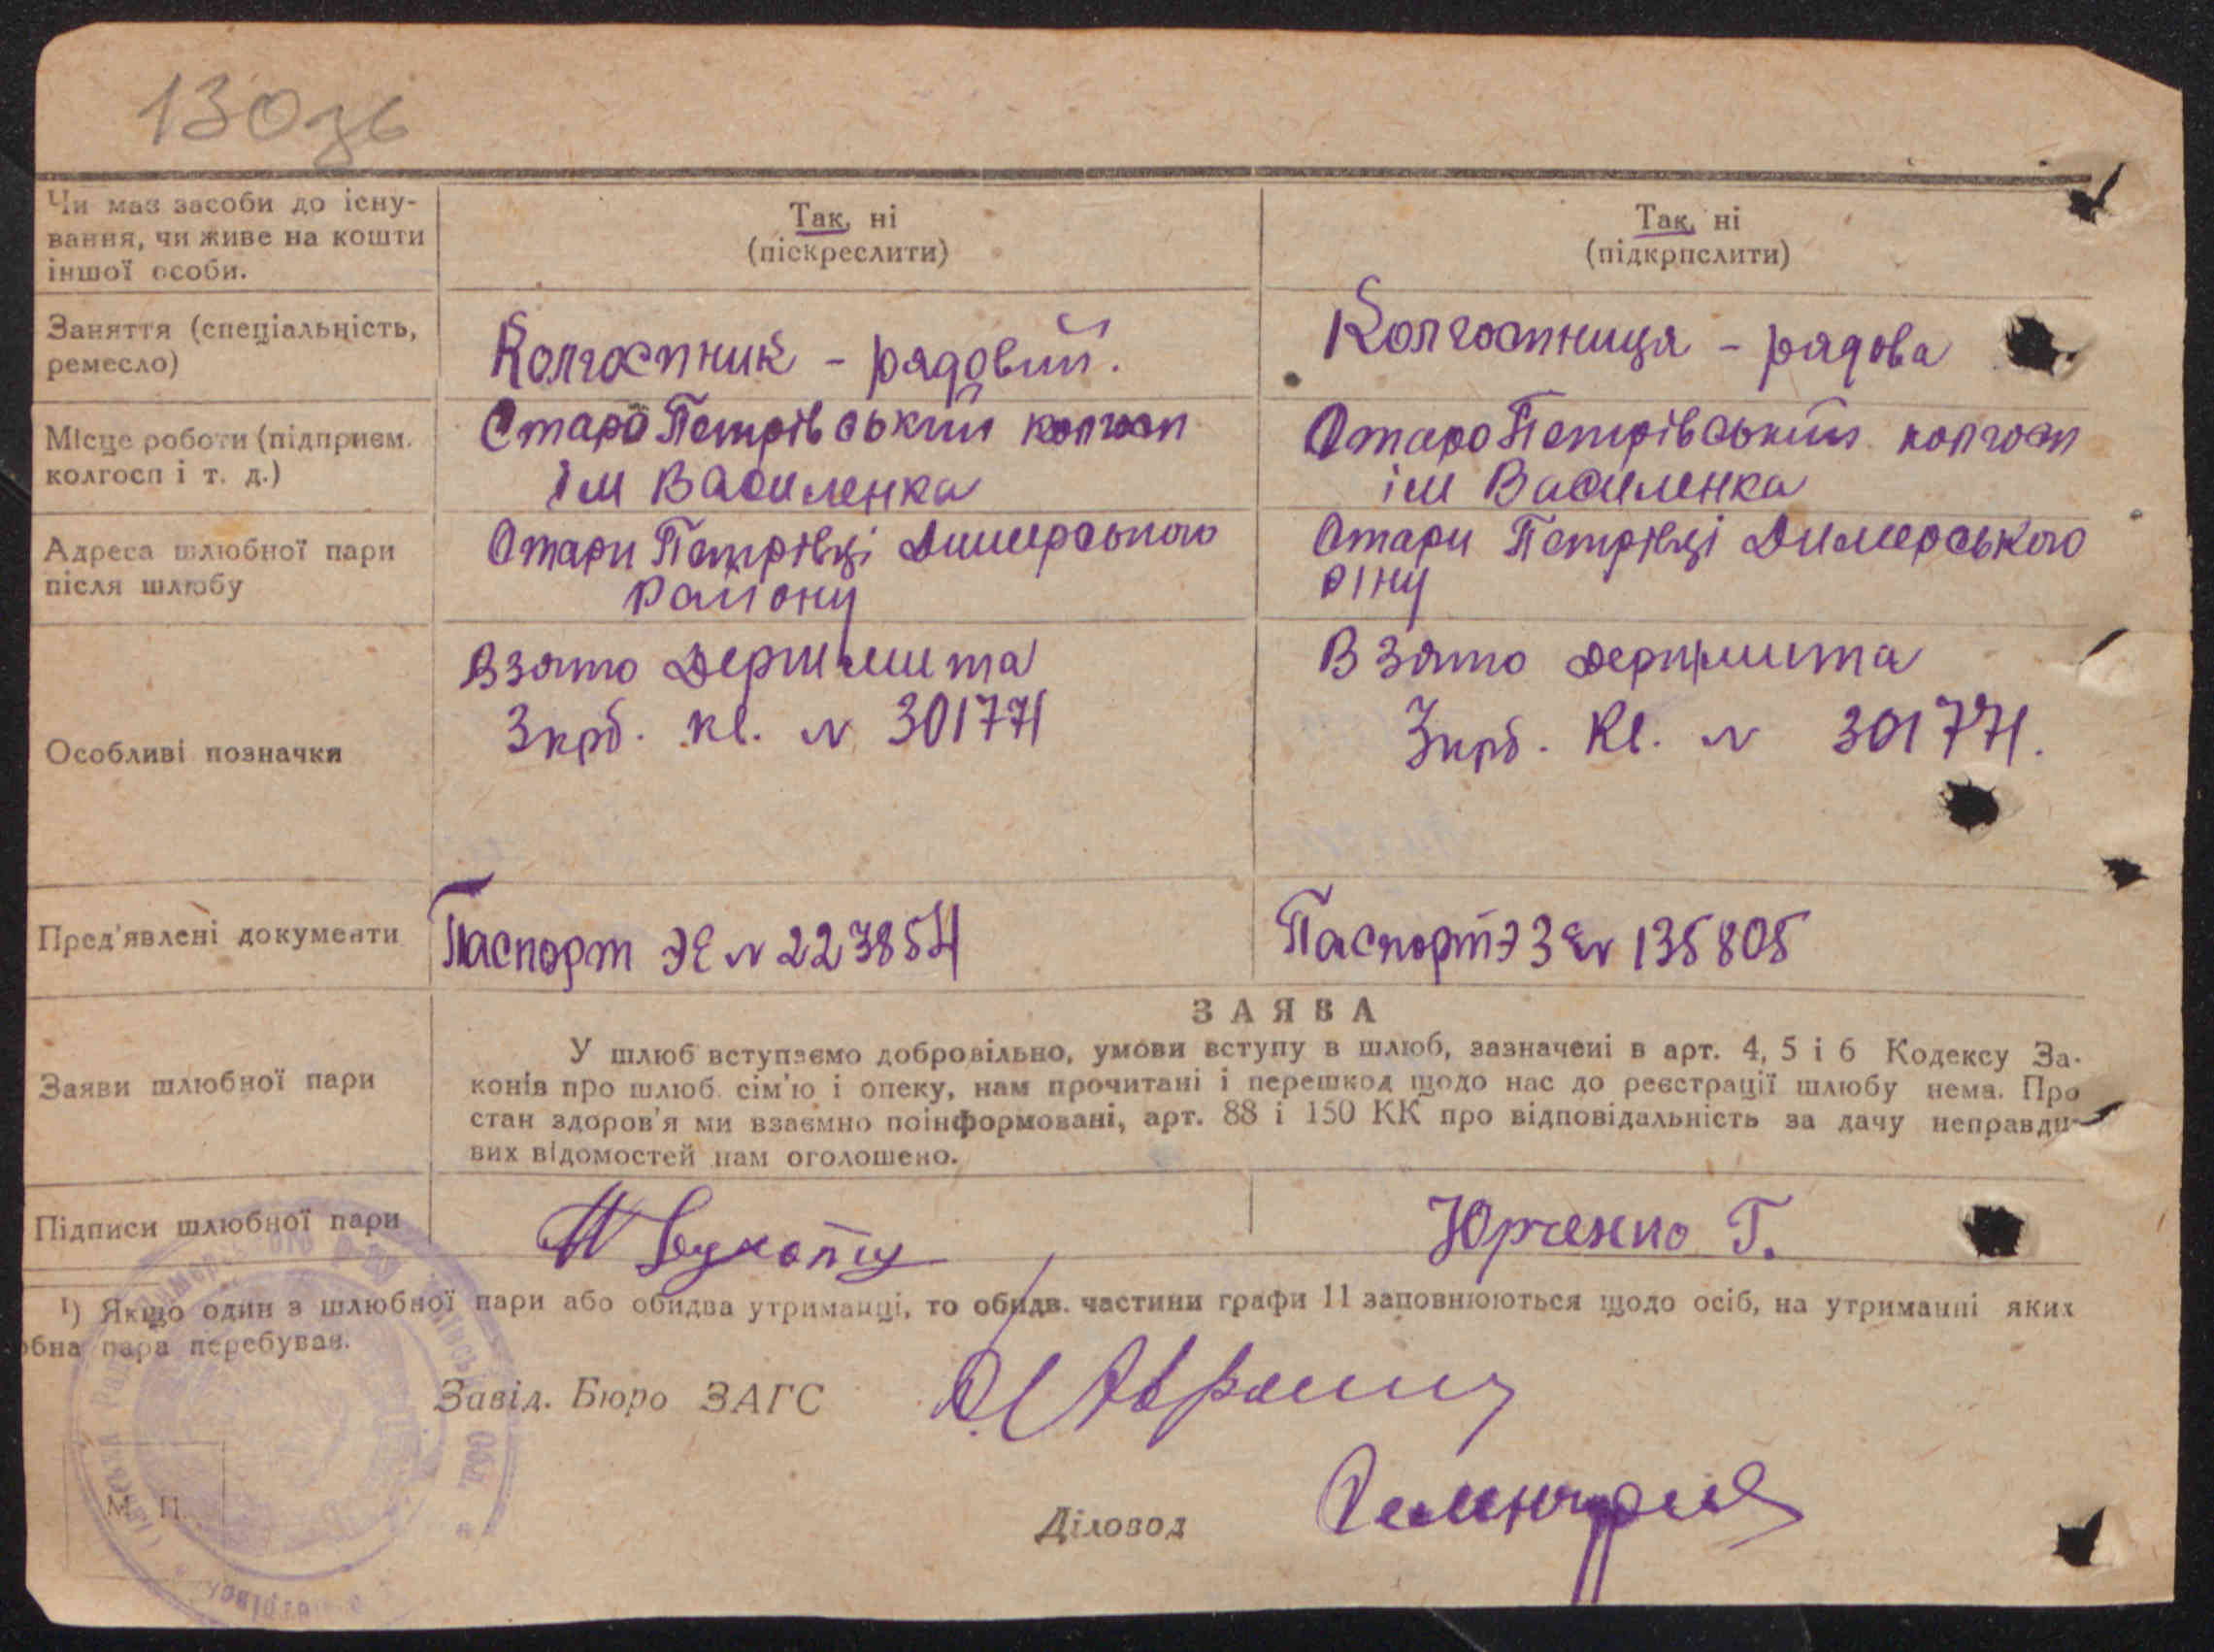 130зв
Чи має засоби до існу-
вання, чи живе на кошти
іншої особи.
Так, ні
(піскреслити)
Так, ні
(підкрпслити)
Заняття (спеціальність,
ремесло)
Колгоспник - рядовий.
Колгоспниця - рядова
Місце роботи (підприєм.
колгосп і т. д.)
Старо Петрівський колгосп
ім Василенка
Старо Петрівський колгосп
ім Василенка
Адреса шлюбної пари
після шлюбу
Стари Петрівці Димерського
Району
Стари Петрівці Димерського
рну
Особливі позначки
Взято Держмита
3крб. кв. № 301771
Взято держмита
3крб. Кв. № 301771.
Пред'явлені документи
Паспорт ЭЕ № 223854
Паспорт № 135805
Заяви шлюбної пари
ЗАЯВА
У шлюб вступаємо добровільно, умови вступу в шлюб, зазначені в арт. 4, 5 і 6 Кодексу За-
конів про шлюб сім'ю і опеку, нам прочитані і перешкод щодо нас до реєстрації шлюбу нема. Про
стан здоров'я ми взаємно поінформовані, арт. 88 і 150 КК про відповідальність за дачу неправди-
вих відомостей нам оголошено.
Підписи шлюбної пари
Юрченко Г.
1) Якщо один з шлюбної пари або обидва утриманці, то обидв. частини графи 11 заповнюються щодо осіб, на утриманні яких
обна пара перебуває.
Завід. Бюро ЗАГС
Діловод
М. П.